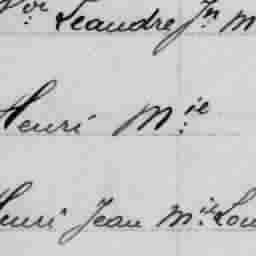 Vor Leandre Jn M
Henri Mie
Henri Jean Mie Lou